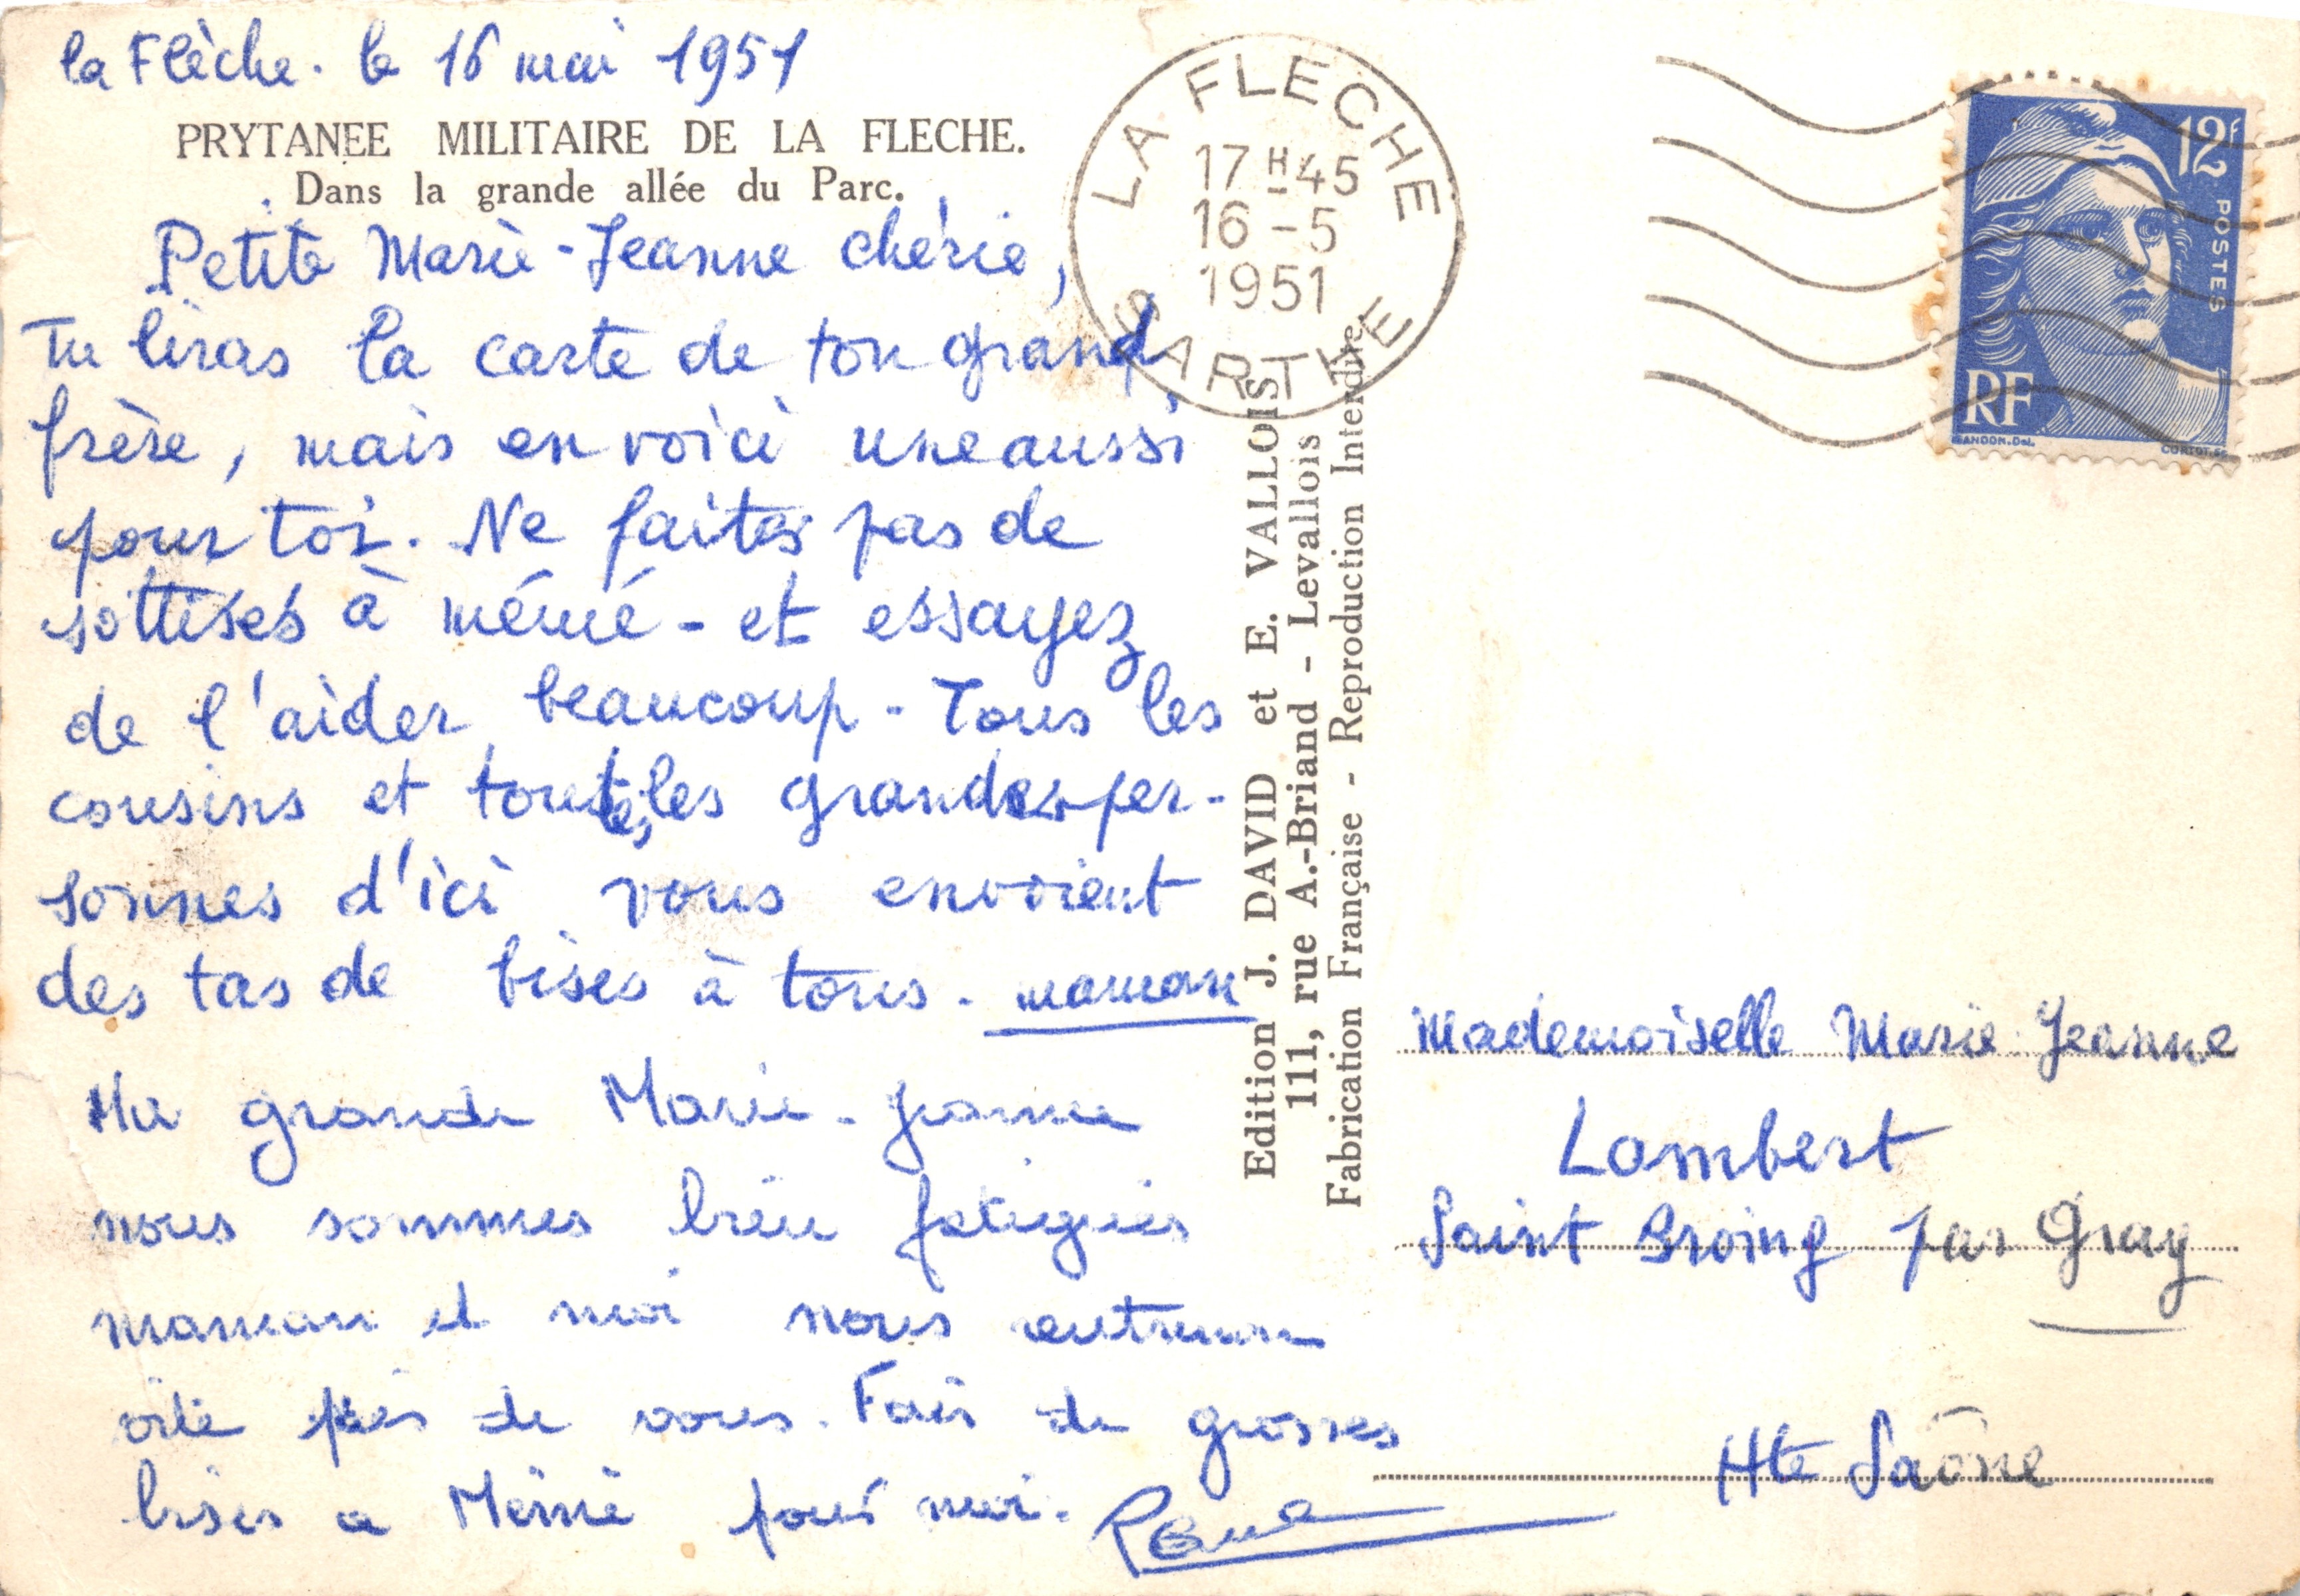 la Flèche. le 16 mai 1951
PRYTANEE MILITAIRE DE LA FLECHE.
Dans la grande allée du Parc.
Petite Marie-Jeanne chérie,
Tu liras la carte de ton grand
frère, mais en voici une aussi
pour toi. Ne faites pas de
sottises à mémé - et essayez
de l'aider beaucoup - Tous les
cousins et toutes les grandes per-
sonnes d'ici vous envoient
des tas de bises à tous. maman
Ma grande Marie-Jeanne
nous sommes bien fatigués
maman et moi nous
vite près de vous. Fais de grosses
bises a Mémé pour moi.
LA FLECHE
17H45
16-5
1951
SARTHE
12F
POSTES
RF
GANDON.Del.
CORTOT.SC
Edition J. DAVID et E. VALLOIS
111, rue A.-Briand - Levallois
Fabrication Française - Reproduction Interdite.
Mademoiselle Marie-Jeanne
Lambert
Saint Broing par Gray
Hte Saône